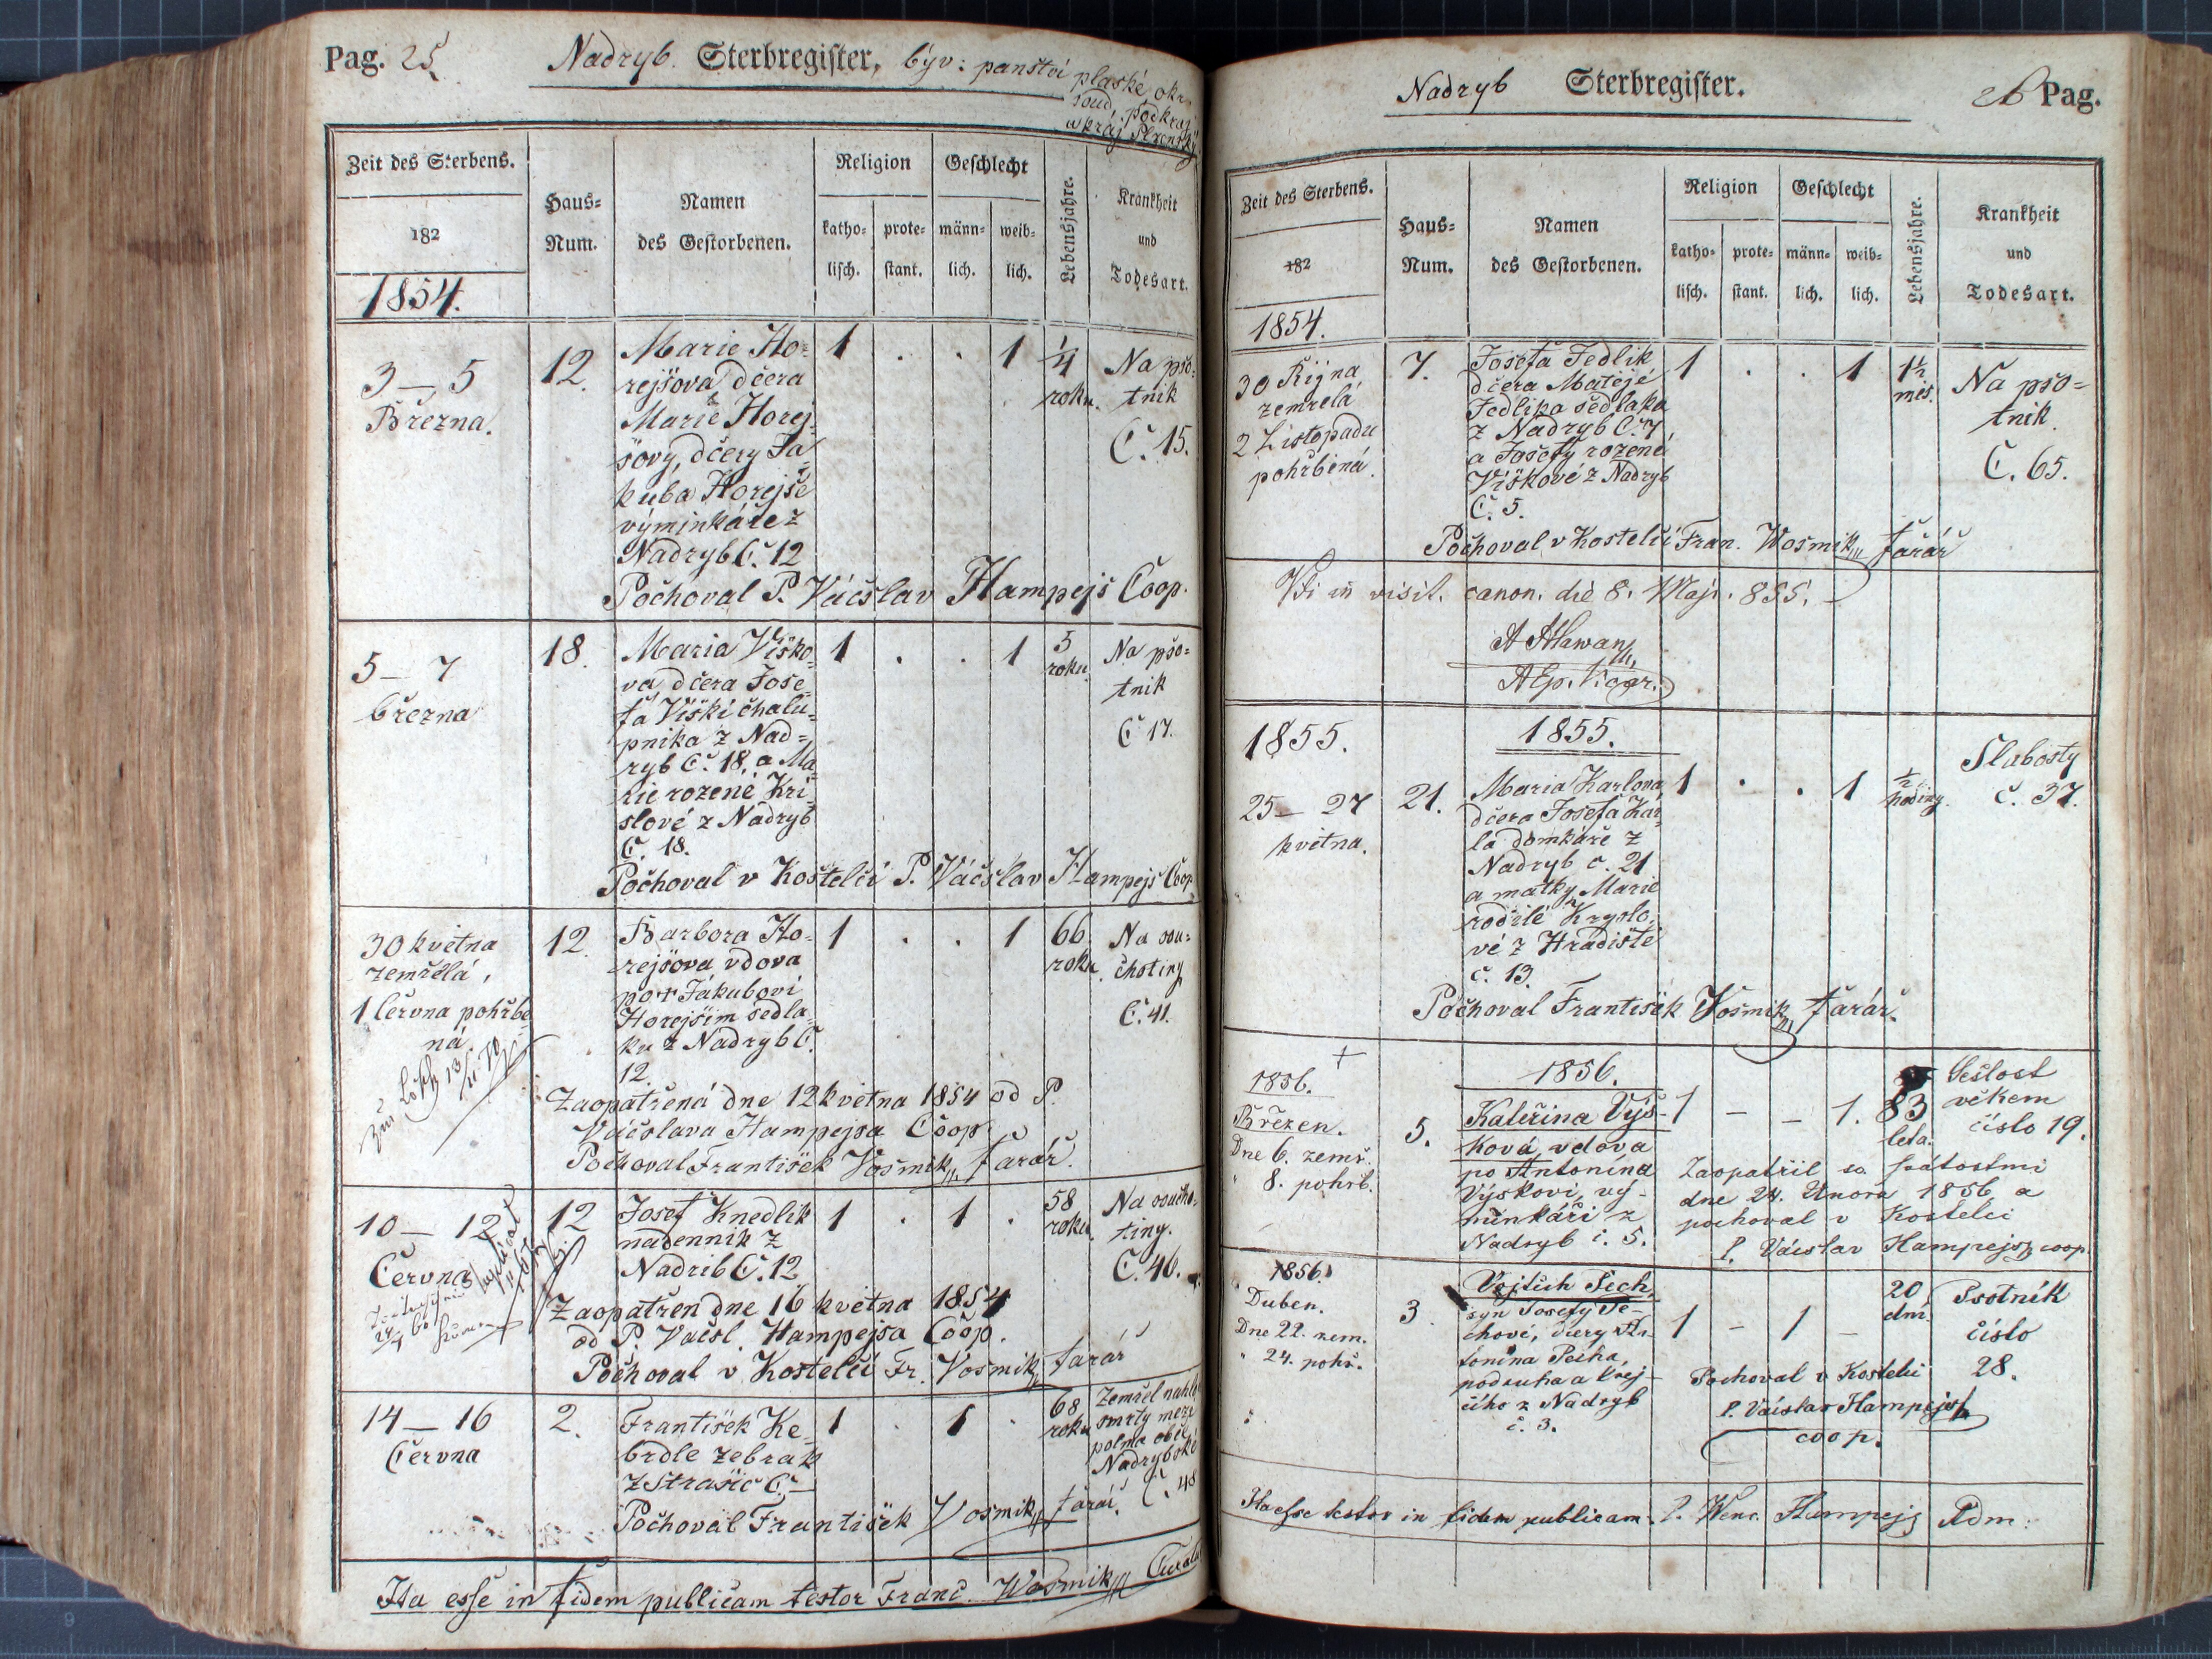 Pag. 25
Nadryb. Sterbregister, býv: panství plaské okr.
soud. podkraj
a kráj Plzenský
Zeit des Sterbens.
182
1854.
Haus-
Num.
Namen
des Gestorbenen.
Religion
katho-
lisch.
prote-
stant.
Geschlecht
männ-
lich.
weib-
lich.
Lebensjahre.
Krankheit
und
Todesart.
3 — 5
Března.
12.
Marie Ho-
rejšova dčera
Marie Horej-
šovy, dčery Ja
kuba Horejše
výminkáře z
Nadryb Č. 12
1 . . 1
1/4
roku.
Na pso-
tnik
Č. 15.
Pochoval P. Váčslav Hampejs Coop.
5 — 7
března
18.
Maria Viško-
va dčera Jose-
fa Viški chalu-
pnika z Nad-
ryb Č. 18, a Ma-
rie rozené Kri-
slové z Nadryb
Č. 18.
1 . . 1
5
roku
Na pso-
tnik
Č 17.
Pochoval v Kostelci P. Váčslav Hampejs Coop.
30 května
zemřélá,
1 Června pohřbe
ná.
12.
Barbora Ho-
rejšova vdova
po † Jakubovi
Horejšim sedla-
ku z Nadryb Č.
12.
1 . . 1
66
roku.
Na sou-
chotiny
Č. 41.
Zaopatřená dne 12 května 1854 od P.
Váčslava Hampejsa Coop
Pochoval František Vosmik, farář.
10 — 12
Června
12
Josef Knedlik
nadennik z
Nadrib Č. 12
1 . 1 .
58
roku.
Na soucho-
tiny.
Č. 46.
Zaopatřen dne 16 května 1854
od P. Vačsl. Hampejsa Coop.
Pochoval v Kostelci Fr. Vosmik, farář
14 — 16
Června
2.
František Ke-
brdle žebrak
z Strašic Č. —
1 . 1 .
68
roku
Zemřel nahle
smrty mezi
polma obce
Nadrybské
Č. 48
Pochoval František Vosmik, farář.
Ita esse in fidem publicam testor Franc. Wosmik, Curatus
Nadryb Sterbregister. 26 Pag.
Zeit des Sterbens.
182
1854.
Haus-
Num.
Namen
des Gestorbenen.
Religion
katho-
lisch.
prote-
stant.
Geschlecht
männ-
lich.
weib-
lich.
Lebensjahre.
Krankheit
und
Todesart.
30 Řijna
zemřelá
2 Listopadu
pohřbená.
7.
Josefa Jedlik
dčera Matěje
Jedlika sedlaka
z Nadryb Č. 7
a Josefy rozené
Viškové z Nadryb
Č. 5.
1 . . 1
1½
měs.
Na pso-
tnik.
Č. 65.
Pochoval v Kostelci Fran. Wosmik, farář
Vdi in visit. canon. die 8. Maji. 855.
1855.
1855.
25 — 27
května.
21.
Maria Karlova
dčera Josefa Kar-
la domkáře z
Nadryb č. 21
a matky Marie
rodilé Kryslo-
vé z Hradiště
č. 13.
1 . . 1
½
hodiny.
Slabosty
č. 37.
Pochoval František Vosmik, farář.
1856. †
1856.
Březen.
Dne 6. zemř.
" 8. pohřb.
5.
Kateřina Výš-
ková, vdova
po Antonína
Výškovi, vý-
minkáři z
Nadryb č. 5.
1 — — 1.
83
leta.
Sešlost
věkem
číslo 19.
Zaopatřil sv. svátostmi
dne 24. Února 1856 a
pochoval v Kostelci
P. Václav Hampejs, coop.
1856.
Duben.
Dne 22. zem.
" 24. pohř.
3.
Vojtěch Pech,
syn Josefy Pe-
chové, dcery An-
tonína Pecha,
podruha a krej-
čího z Nadryb
č. 3.
1 — 1 —
20
dní.
Psotník
číslo
28.
Pochoval v Kostelci
P. Václav Hampejs
coop.
Ita esse testor in fidem publicam. P. Wenc. Hampejs Adm: